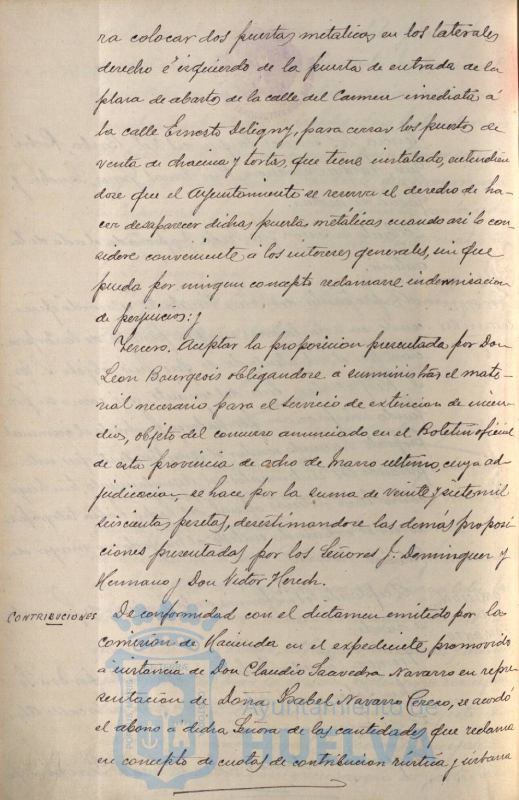 ra colocar dos puertas metalicas en los laterales
derecho é izquierdo de la puerta de entrada de la
plaza de abastos de la calle del Carmen inmediata á
la calle Ernesto Deligny, para cerrar los puestos de
venta de chacina y tortas, que tiene instalado, entendien
dose que el Ayuntamiento se reserva el derecho de ha-
cer desaparecer dichas puertas metálicas cuando asi lo con-
sidere conveniente á los intereses generales, sin que
pueda por ningun concepto reclamarse indemnizacion
de perjuicios: y
Tercero. Aceptar la proposicion presentada por Don
Leon Bourgeois obligandose á suministrar el mate-
rial necesario para el servicio de extincion de incen-
dios, objeto del concurso anunciado en el Boletin oficial
de esta provincia de ocho de Marzo ultimo, cuya ad-
judicacion se hace por la suma de veinte y siete mil
seiscientas pesetas, desestimandose las demás proposi
ciones presentadas por los Señores J. Dominguez y
Hermano y Don Victor
CONTRIBUCIONES De conformidad con el dictamen emitido por la
Comision de Hacienda en el expediente promovido
á instancia de Don Claudio Saavedra Navarro en repre
sentacion de Doña Isabel Navarro Cerezo, se acordó
el abono á dicha Señora de las cantidades que reclama
en concepto de cuotas de contribucion rustica y urbana
Ayuntamiento de
HUELVA